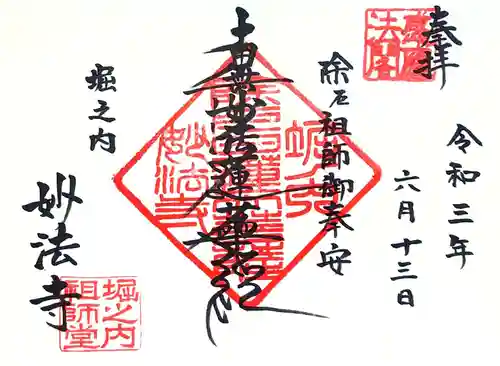 奉拝
令和三年
六月十三日
除厄祖師御奉安
南無妙法蓮華経
堀之内
妙法寺
堀之内
妙法寺
堀之内
祖師堂